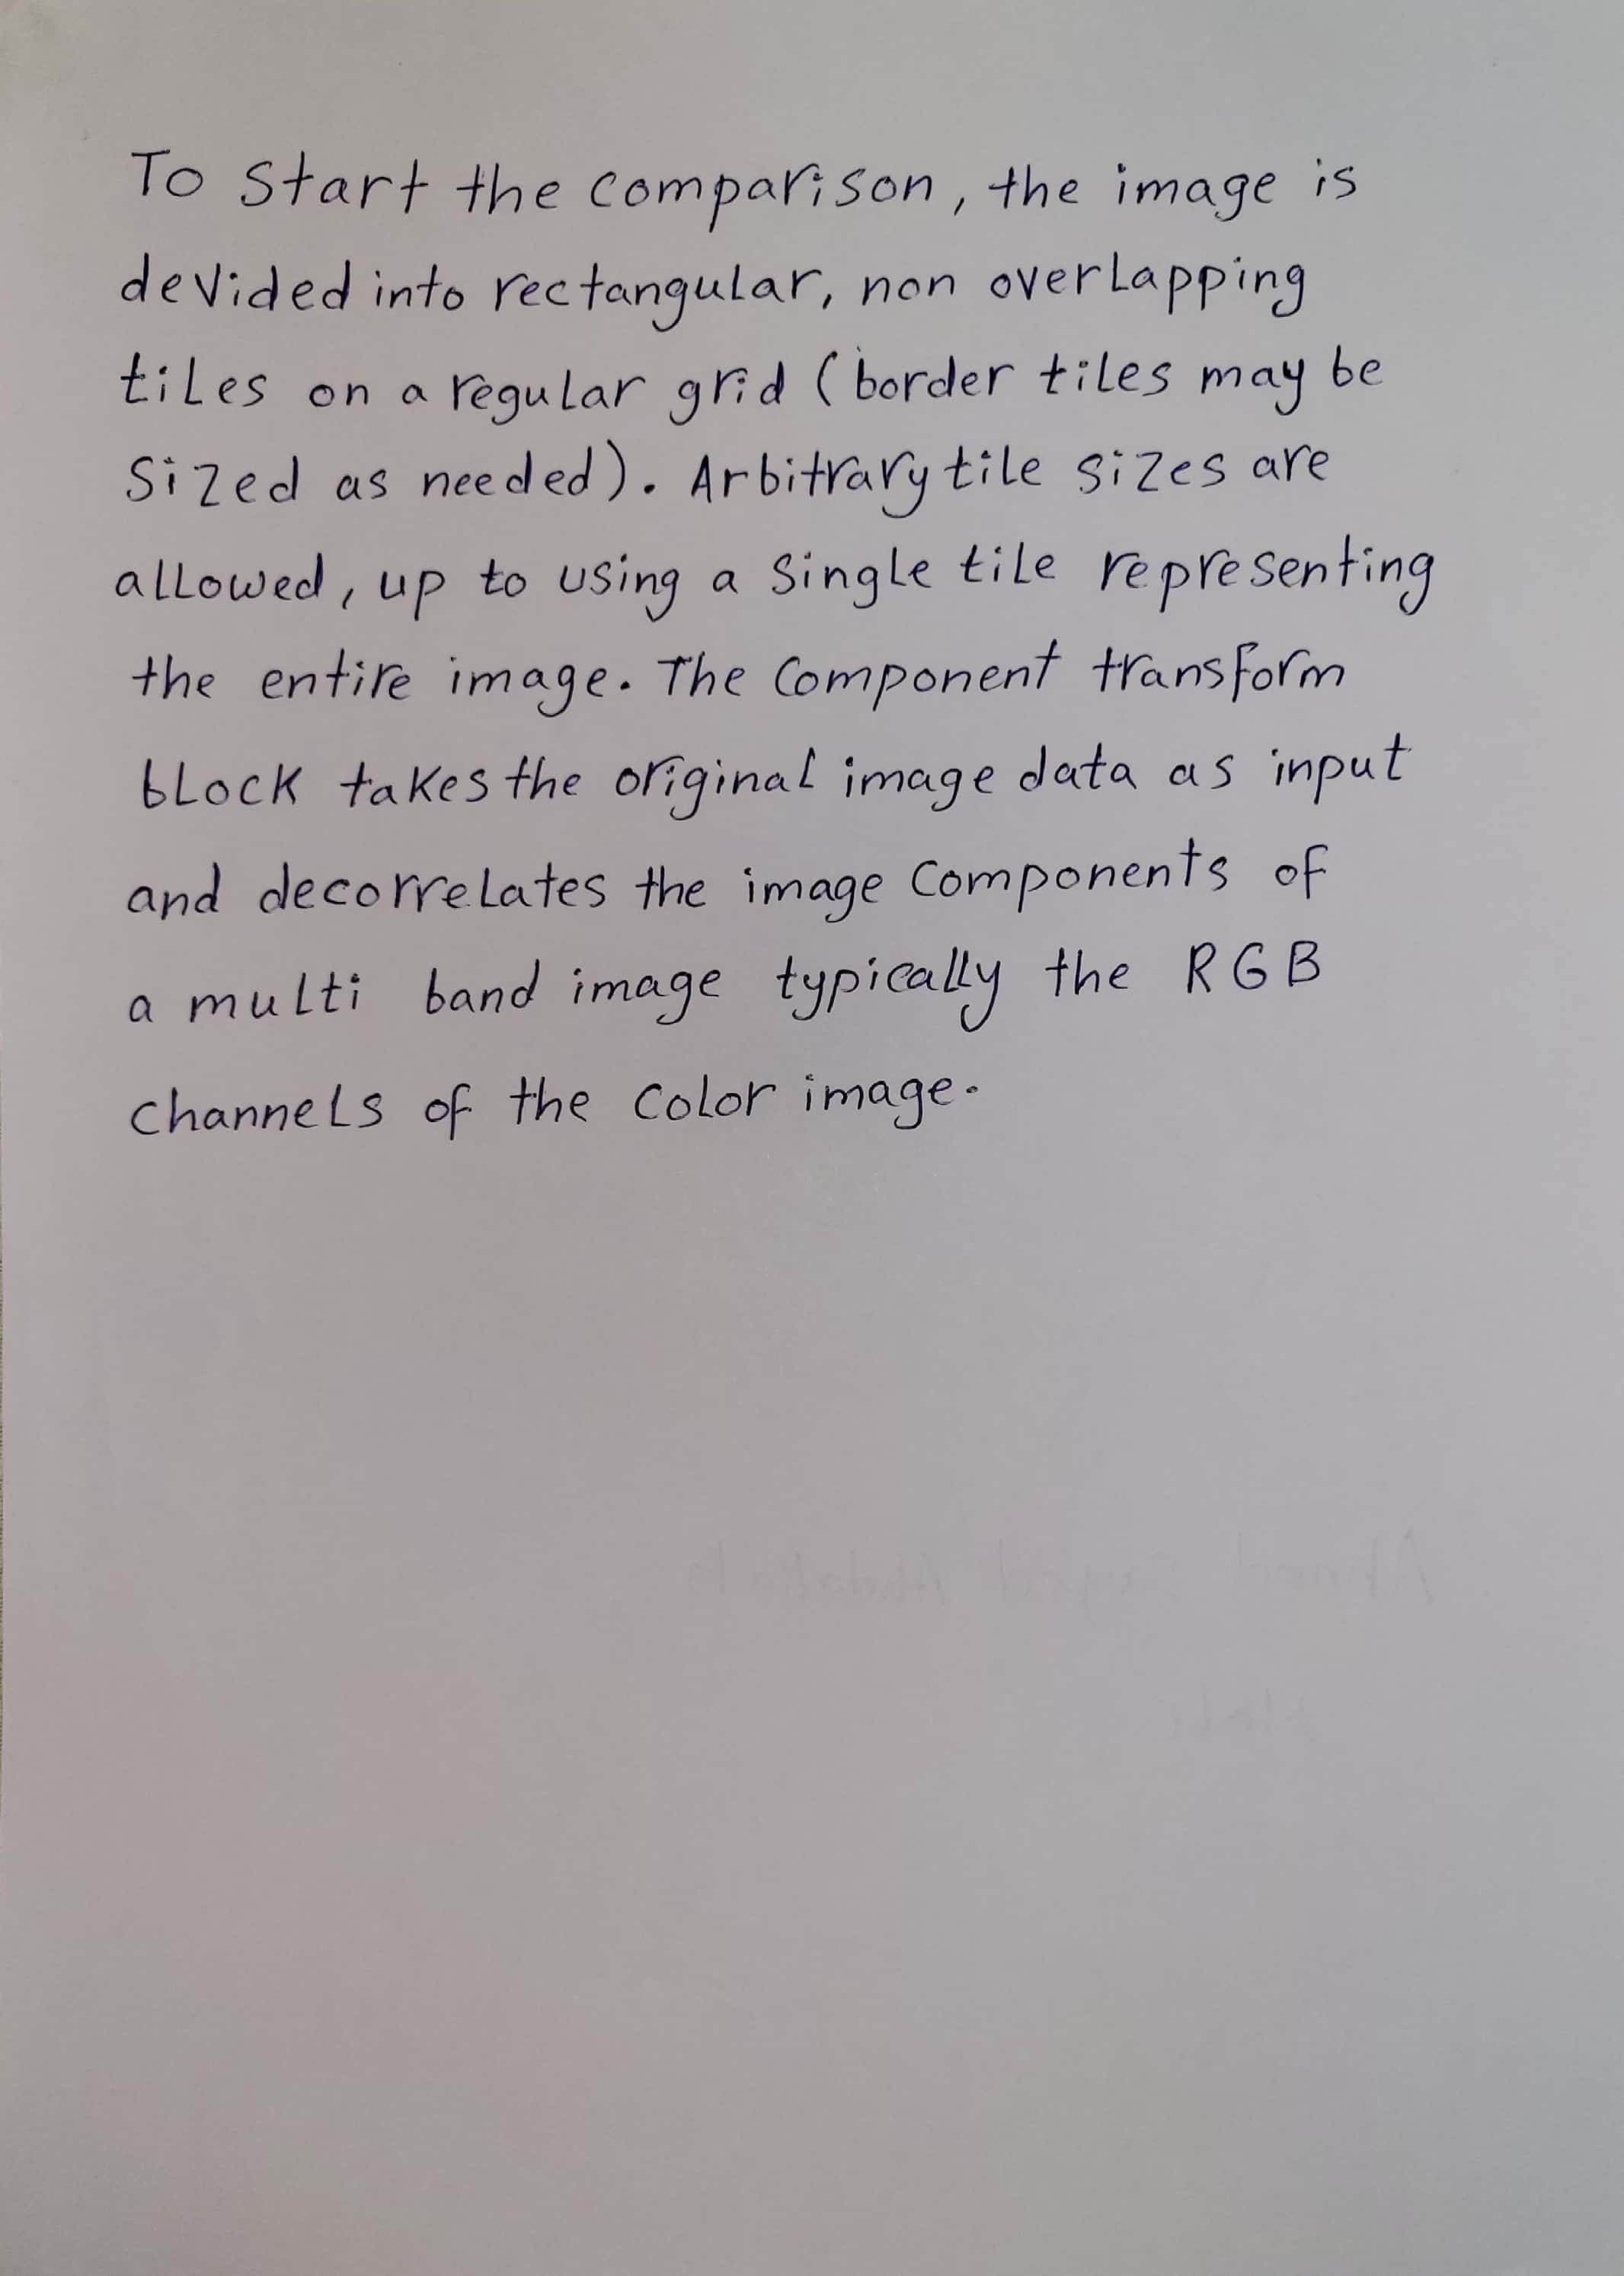 To start the comparison, the image is
devided into rectangular, non overlapping
tiles on a regular grid (border tiles may be
sized as needed). Arbitrary tile sizes are
allowed, up to using a single tile representing
the entire image. The component transform
block takes the original image data as input
and decorrelates the image components of
a multi band image typically the RGB
channels of the color image.